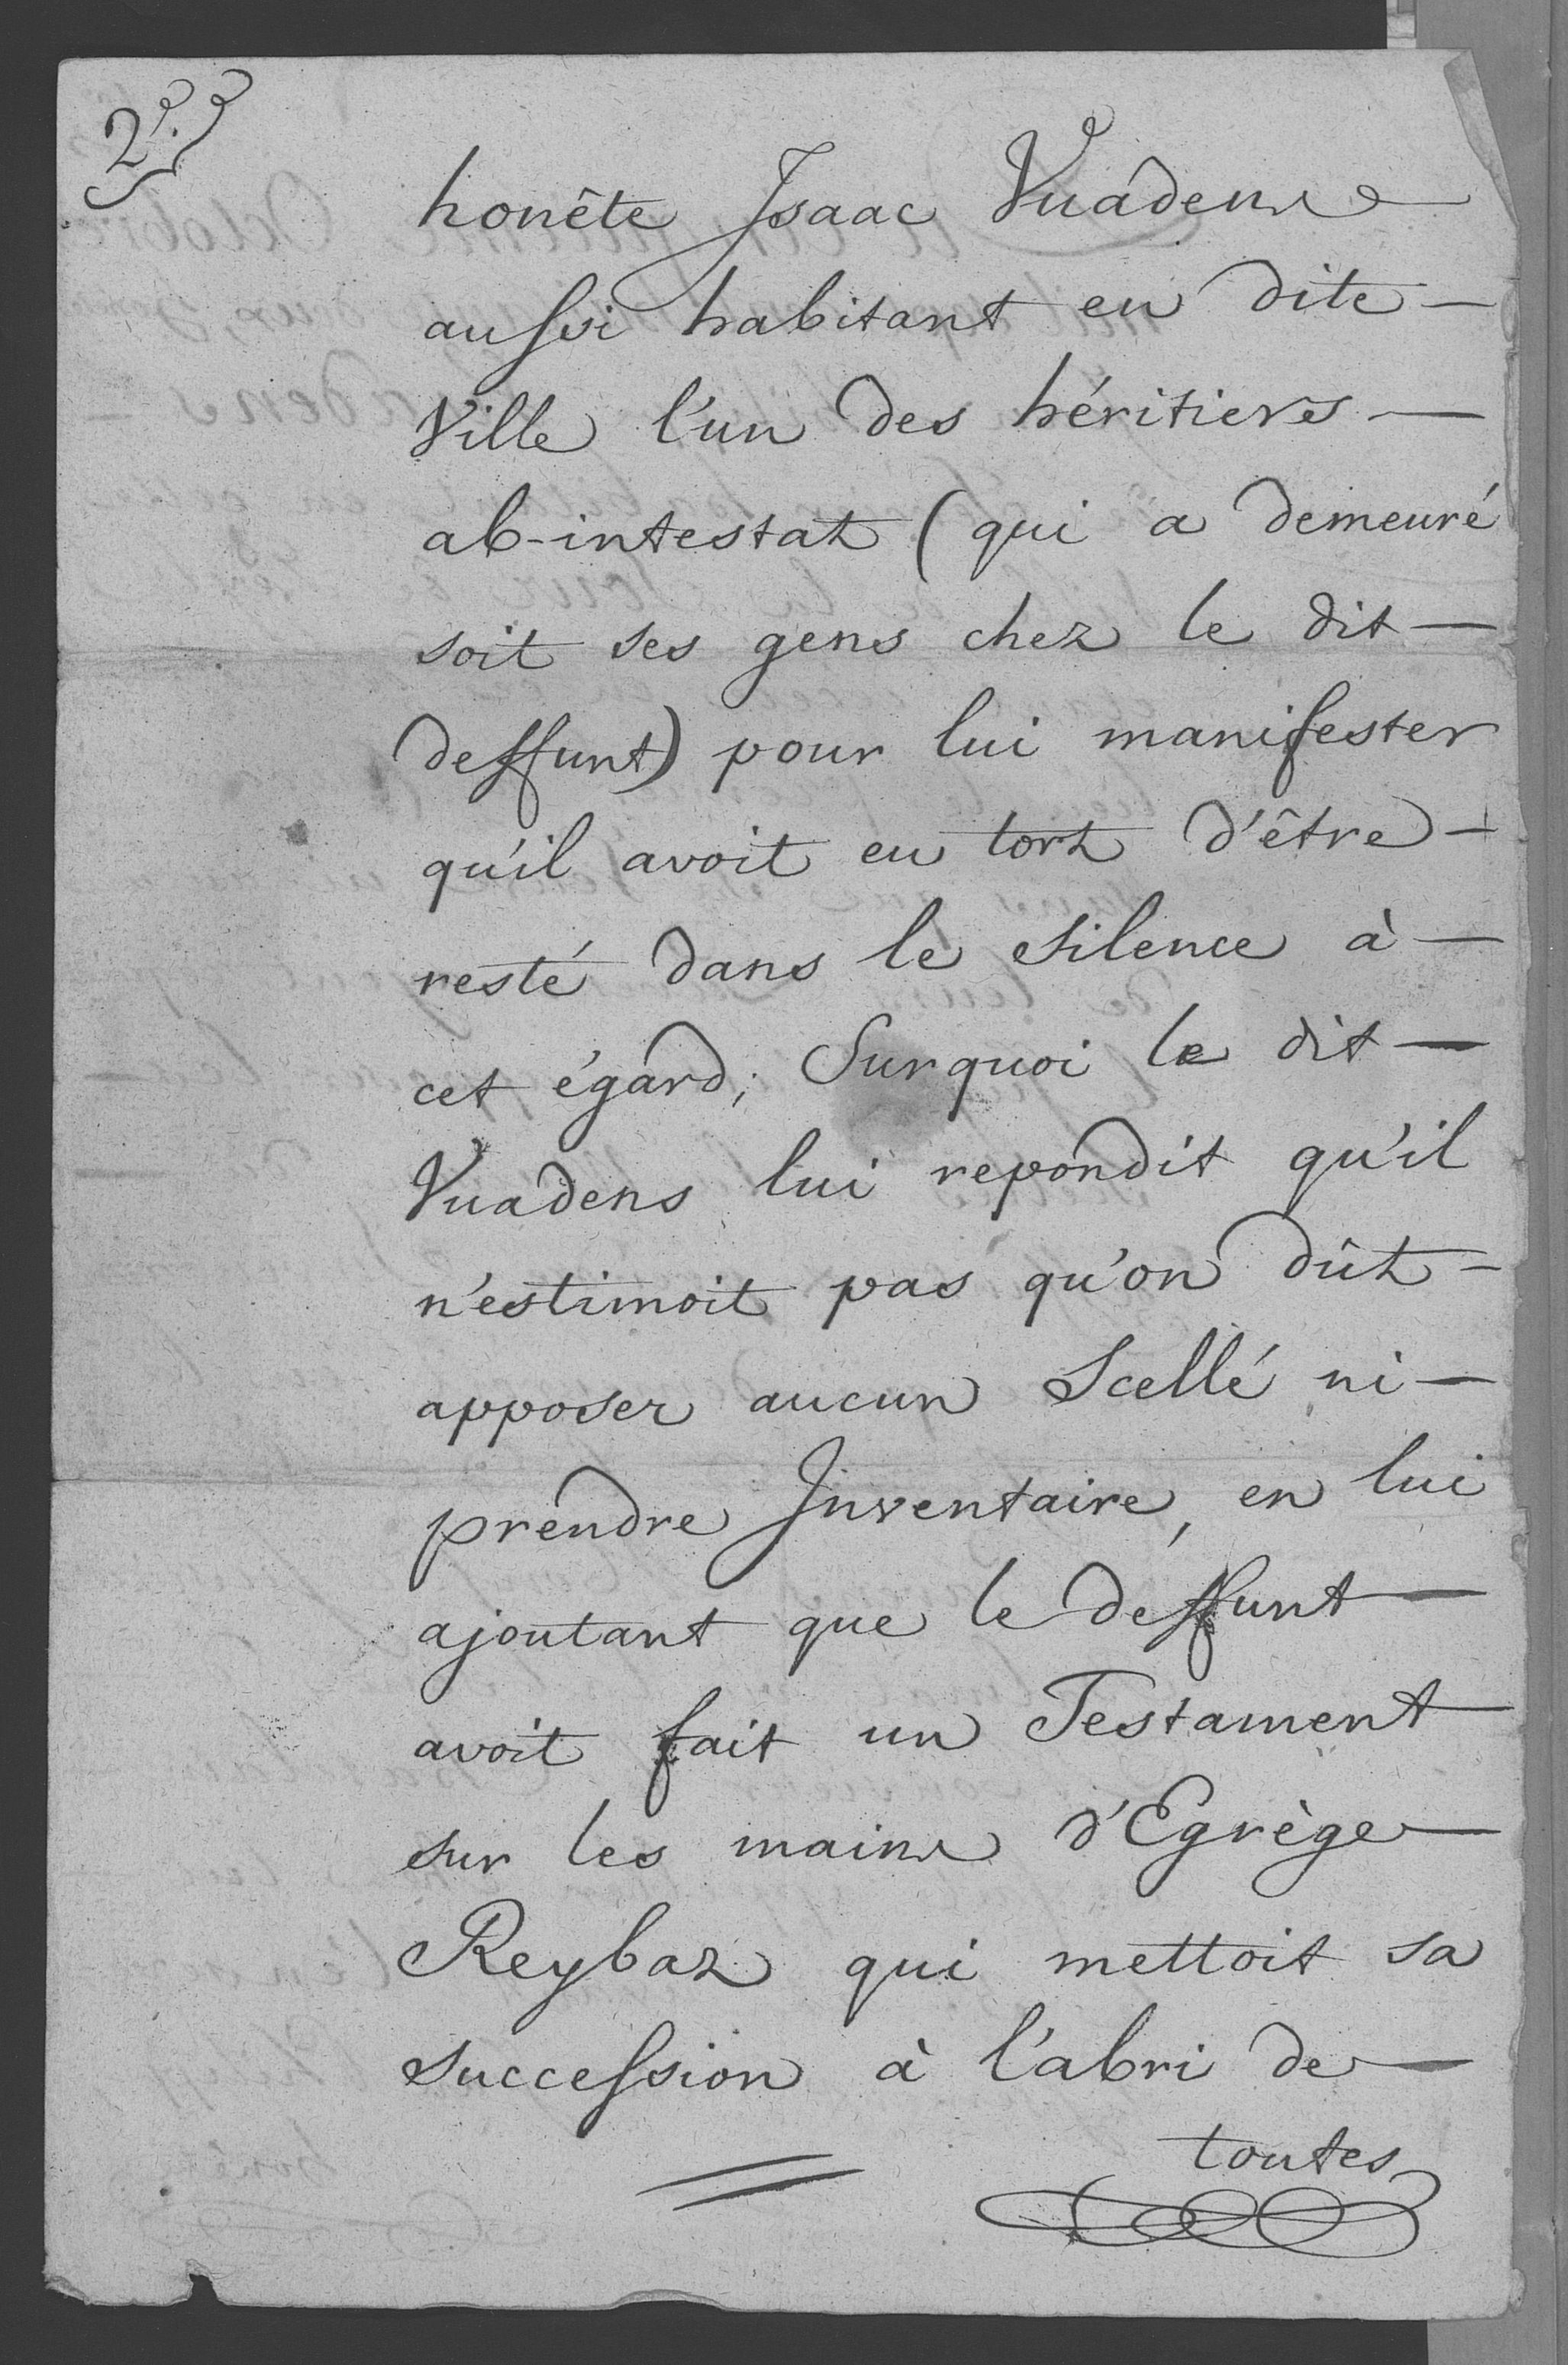 2e.
honête Isaac Vuadens
aussi habitant en dite —
Ville l'un des héritiers —
ab-intestat (qui a demeuré
soit ses gens chez le dit —
deffunt) pour lui manifester
qu'il avoit eu tort d'être —
resté dans le silence à —
cet égard; Surquoi le dit —
Vuadens lui repondit qu'il
n'estimoit pas qu'on dût —
apposer aucun Scellé ni —
prendre Inventaire, en lui
ajoutant que le deffunt —
avoit fait un Testament
sur les mains d'Egrège —
Reybaz qui mettoit sa
succession à l'abri de —
toutes